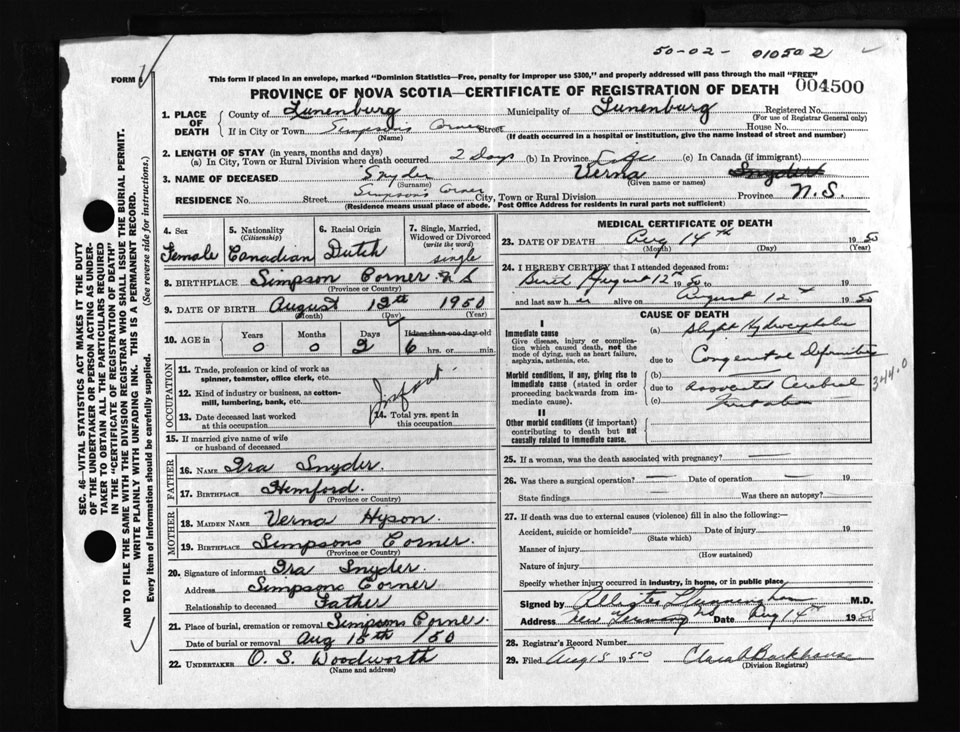 50-02- 010502
FORM
This form if placed in an envelope, marked "Dominion Statistics—Free, penalty for improper use $300," and properly addressed will pass through the mail "FREE"
004500
PROVINCE OF NOVA SCOTIA—CERTIFICATE OF REGISTRATION OF DEATH
1. PLACE OF DEATH
County of Lunenburg Municipality of Lunenburg Registered No.
(For use of Registrar General only)
If in City or Town Simpson's Corner Street House No.
(Name) (If death occurred in a hospital or institution, give the name instead of street and number)
2. LENGTH OF STAY (in years, months and days)
(a) In City, Town or Rural Division where death occurred 2 Days (b) In Province Life (c) In Canada (if immigrant)
3. NAME OF DECEASED Snyder Verna Snyder
(Surname) (Given name or names)
RESIDENCE No. Street Simpson's Corner City, Town or Rural Division Province N.S.
(Residence means usual place of abode. Post Office Address for residents in rural parts not sufficient)
4. Sex
Female
5. Nationality
(Citizenship)
Canadian
6. Racial Origin
Dutch
7. Single, Married, Widowed or Divorced
(write the word)
single
8. BIRTHPLACE Simpson Corner N S
(Province or Country)
9. DATE OF BIRTH August 12th 1950
(Month) (Day) (Year)
10. AGE in
Years Months Days If less than one day old
0 0 2 6 hrs. or min.
OCCUPATION
11. Trade, profession or kind of work as spinner, teamster, office clerk, etc.
12. Kind of industry or business, as cotton-mill, lumbering, bank, etc.
Infant.
13. Date deceased last worked at this occupation
14. Total yrs. spent in this occupation
15. If married give name of wife or husband of deceased
FATHER
16. NAME Ira Snyder.
17. BIRTHPLACE Hemford.
(Province or Country)
MOTHER
18. MAIDEN NAME Verna Hyson.
19. BIRTHPLACE Simpsons Corner.
(Province or Country)
20. Signature of informant Ira Snyder.
Address Simpsons Corner
Relationship to deceased Father
21. Place of burial, cremation or removal Simpsons Corner.
Date of burial or removal Aug 15th /50
22. UNDERTAKER O. S. Woodworth
(Name and address)
MEDICAL CERTIFICATE OF DEATH
23. DATE OF DEATH Aug 14th 1950
(Month) (Day) (Year)
24. I HEREBY CERTIFY that I attended deceased from:
Birth August 12 1950 to 19
and last saw her alive on August 12 1950
CAUSE OF DEATH
I
Immediate cause
Give disease, injury or complication which caused death, not the mode of dying, such as heart failure, asphyxia, asthenia, etc.
Morbid conditions, if any, giving rise to immediate cause (stated in order proceeding backwards from immediate cause).
II
Other morbid conditions (if important) contributing to death but not causally related to immediate cause.
(a) Slight Hydrocephalus
due to Congenital Deformities
(b)
due to Associated Cerebral
(c) Irritation
344.0
25. If a woman, was the death associated with pregnancy?
26. Was there a surgical operation? Date of operation 19
State findings Was there an autopsy?
27. If death was due to external causes (violence) fill in also the following:—
Accident, suicide or homicide? Date of injury 19
(State which)
Manner of injury
(How sustained)
Nature of injury
Specify whether injury occurred in industry, in home, or in public place
Signed by Cunningham M.D.
Address New Germany NS Date Aug 14 1950
28. Registrar's Record Number
29. Filed Aug 15 1950 Clara Barkhouse
(Division Registrar)
SEC. 46—VITAL STATISTICS ACT MAKES IT THE DUTY
OF THE UNDERTAKER OR PERSON ACTING AS UNDER-
TAKER TO OBTAIN ALL THE PARTICULARS REQUIRED
IN THE "CERTIFICATE OF REGISTRATION OF DEATH"
AND TO FILE THE SAME WITH THE DIVISION REGISTRAR WHO SHALL ISSUE THE BURIAL PERMIT.
WRITE PLAINLY WITH UNFADING INK. THIS IS A PERMANENT RECORD.
Every item of information should be carefully supplied. (See reverse side for instructions.)